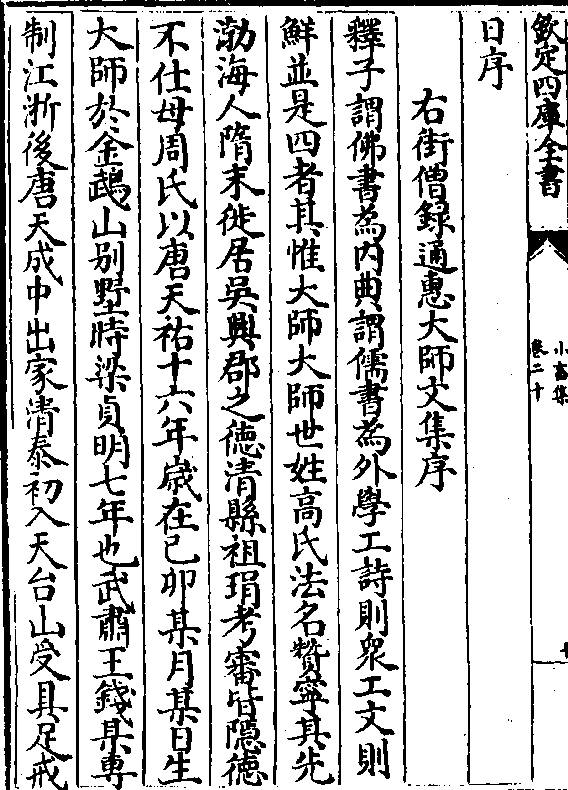 欽定四庫全書
小畜集
卷二十
日序
右街僧録通惠大師文集序
釋子謂佛書為内典謂儒書為外學工詩則衆工文則
鮮並是四者其惟大師大師世姓高氏法名贊寧其先
渤海人隋末徙居吳興郡之徳清縣祖琄考審皆隠徳
不仕母周氏以唐天祐十六年歳在己卯某月某日生
大師於金鵝山别墅時梁貞明七年也武肅王錢某専
制江浙後唐天成中出家清泰初入天台山受具足戒